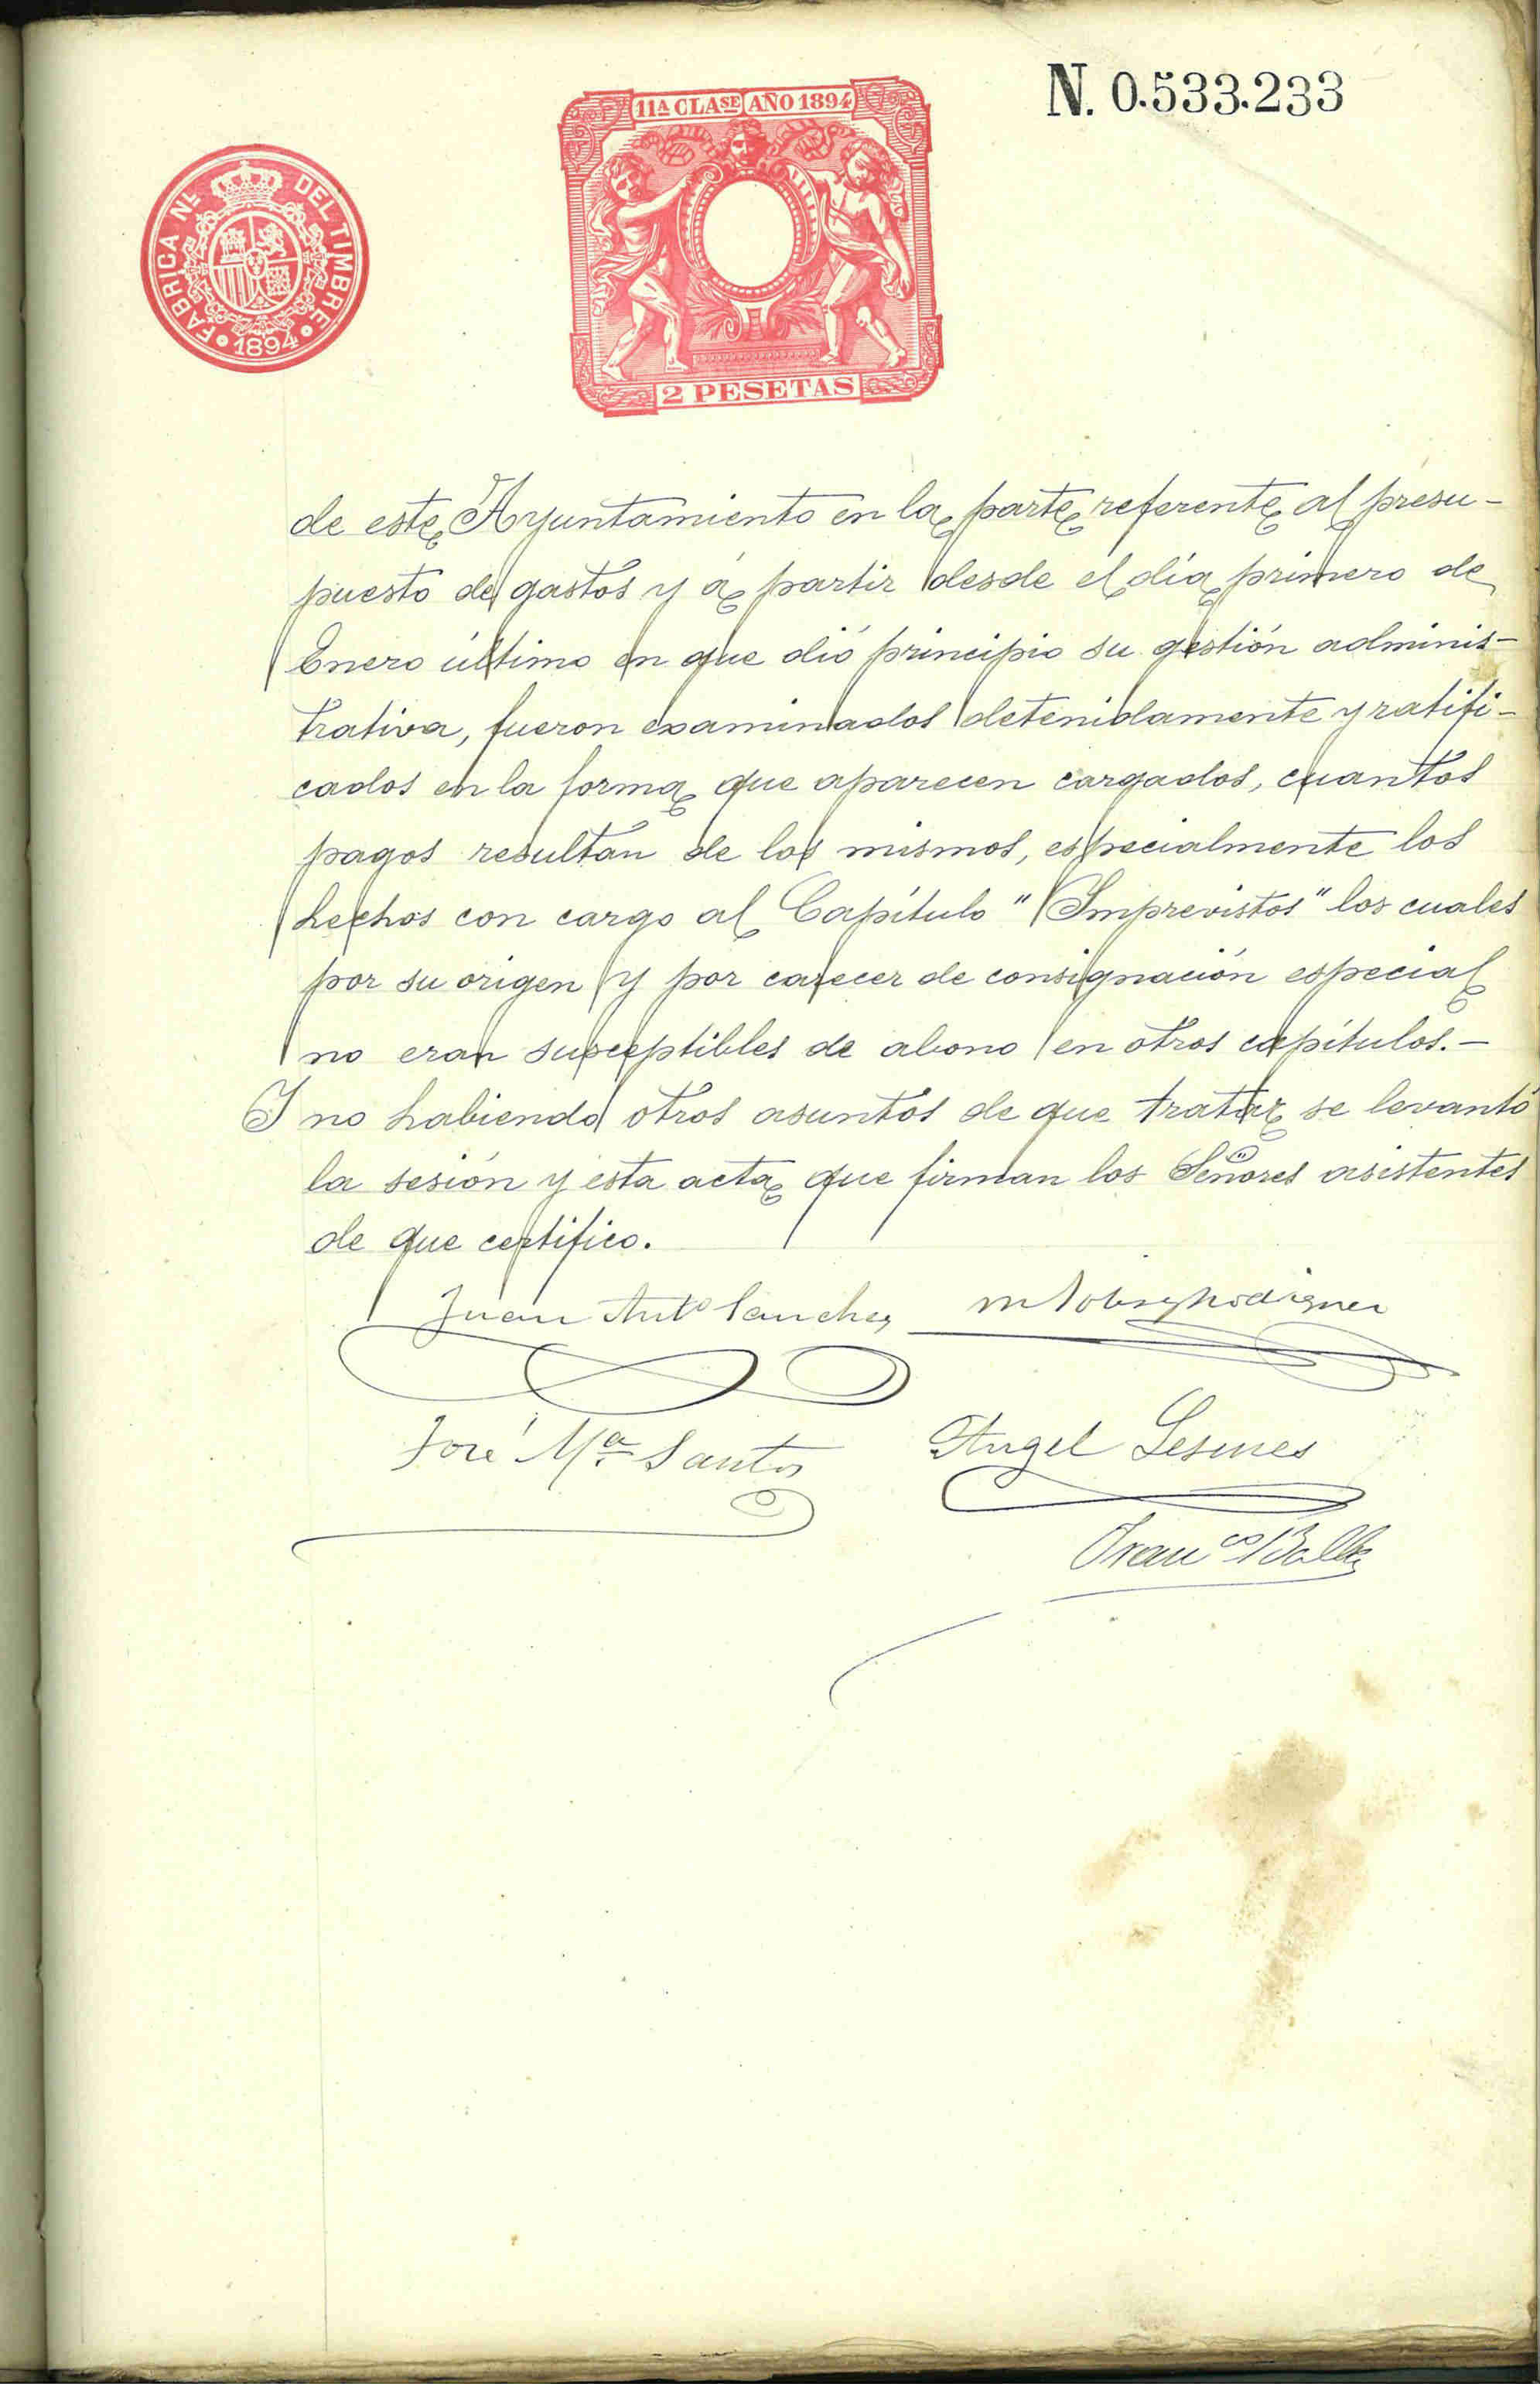 N. 0.533.233
11ª CLASE AÑO 1894
FABRICA NL. DEL TIMBRE
1894
2 PESETAS
de este Ayuntamiento en la parte referente al presu-
puesto de gastos y á partir desde el día primero de
Enero último en que dió principio su gestión adminis-
trativa, fueron examinados detenidamente y ratifi-
cados en la forma que aparecen cargados, cuantos
pagos resultan de los mismos, especialmente los
hechos con cargo al Capítulo "Imprevistos" los cuales
por su origen y por carecer de consignación especial
no eran susceptibles de abono en otros capítulos.-
Y no habiendo otros asuntos de que tratar se levantó
la sesión y esta acta que firman los Señores asistentes
de que certifico.
Juan Antº Sanchez
José Mª Santos
Angel Lesmes
Franco